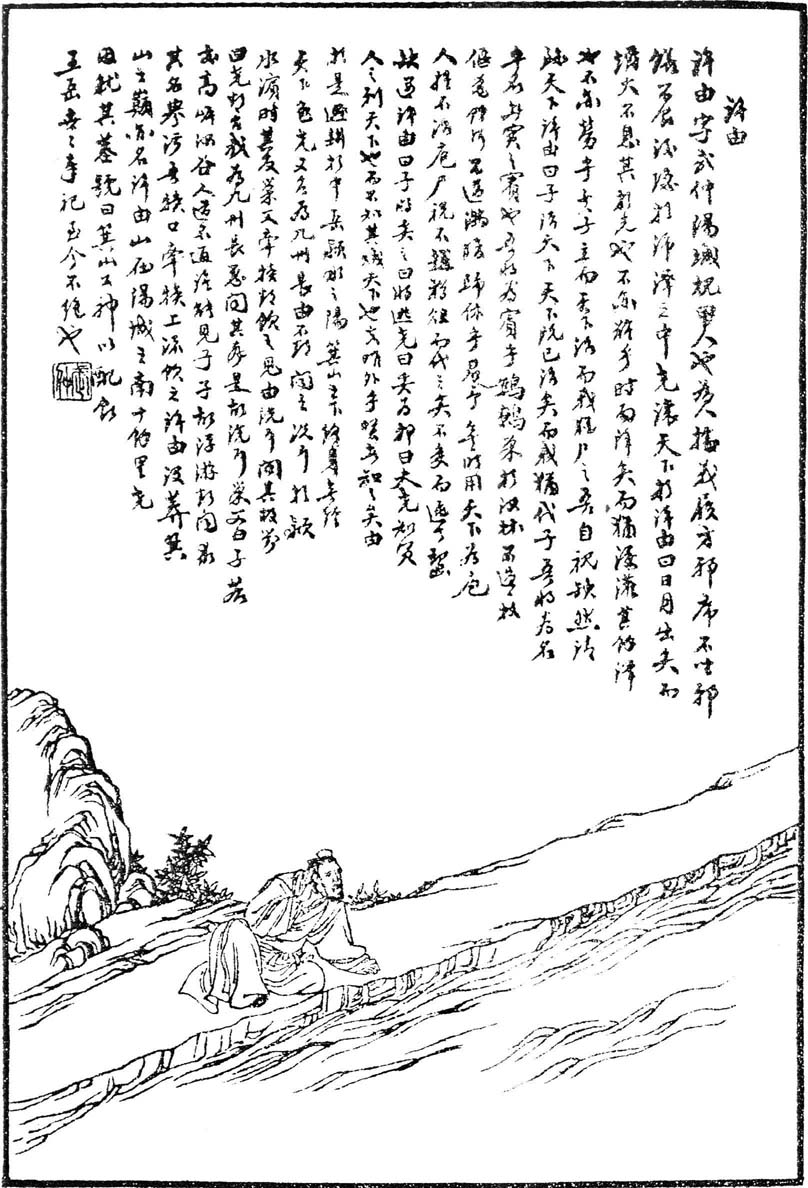 許由
許由字武仲陽城槐里人也為人據義履方邪席不坐邪
饍不食後隱於沛澤之中堯讓天下於許由曰日月出矣而
爝火不息其於光也不亦難乎時雨降矣而猶浸灌其於澤
也不亦勞乎夫子立而天下治而我猶尸之吾自視缺然請
致天下許由曰子治天下天下既已治矣而我猶代子吾將為名
乎名者實之賓也吾將為賓乎鷦鷯巢於深林不過一枝
偃鼠飲河不過滿腹歸休乎君予無所用天下為庖
人雖不治庖尸祝不越樽俎而代之矣不受而逃去齧
缺遇許由曰子將奚之曰將逃堯曰奚為邪曰夫堯知賢
人之利天下也而不知其賊天下也夫唯外乎賢者知之矣由
於是遁耕於中岳潁水之陽箕山之下終身無經
天下色堯又召為九州長由不欲聞之洗耳於潁
水濱時其友巢父牽犢欲飲之見由洗耳問其故對
曰堯欲召我為九州長惡聞其聲是故洗耳巢父曰子若
處高岸深谷人道不通誰能見子子故浮游欲聞求
其名譽污吾犢口牽犢上流飲之許由沒葬箕
山之巔亦名許由山在陽城之南十餘里堯
因就其墓號曰箕山公神以配食
五岳世世奉祀至今不絕也